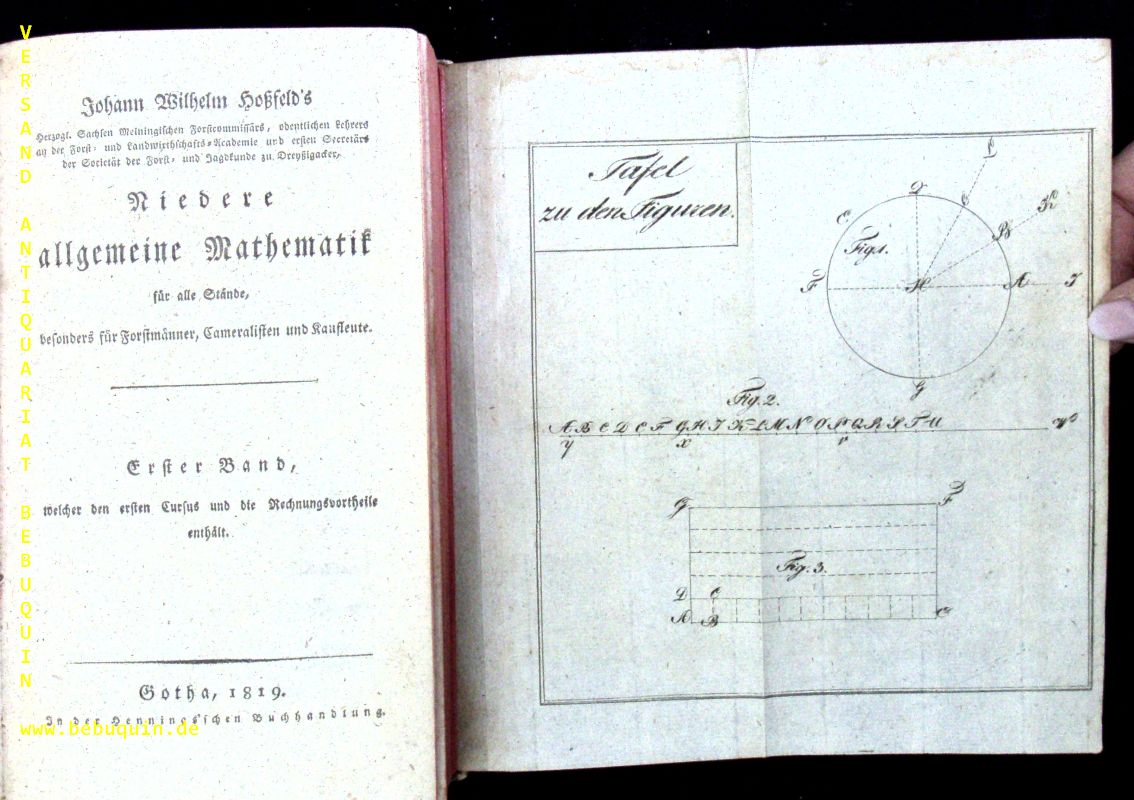 Johann Wilhelm Hoßfeld's
Herzogl. Sachsen Meiningischen Forstcommissärs, odentlichen Lehrers
an der Forst- und Landwirthschafts-Academie und ersten Secretärs
der Societät der Forst- und Jagdkunde zu Dreyßigacker,
Niedere
allgemeine Mathematik
für alle Stände,
besonders für Forstmänner, Cameralisten und Kaufleute.
Erster Band,
welcher den ersten Cursus und die Rechnungsvortheile
enthält.
Gotha, 1819.
In der Hennings'schen Buchhandlung.
Tafel
zu den Figuren.
L
D
C
K
B
Fig. 1.
F
H
A
J
G
Fig. 2.
A B C D E F G H J K L M N O P Q R S T U W
y x v
G
F
Fig. 3.
D
A B C
VERSAND ANTIQUARIAT BEBUQUIN
www.bebuquin.de